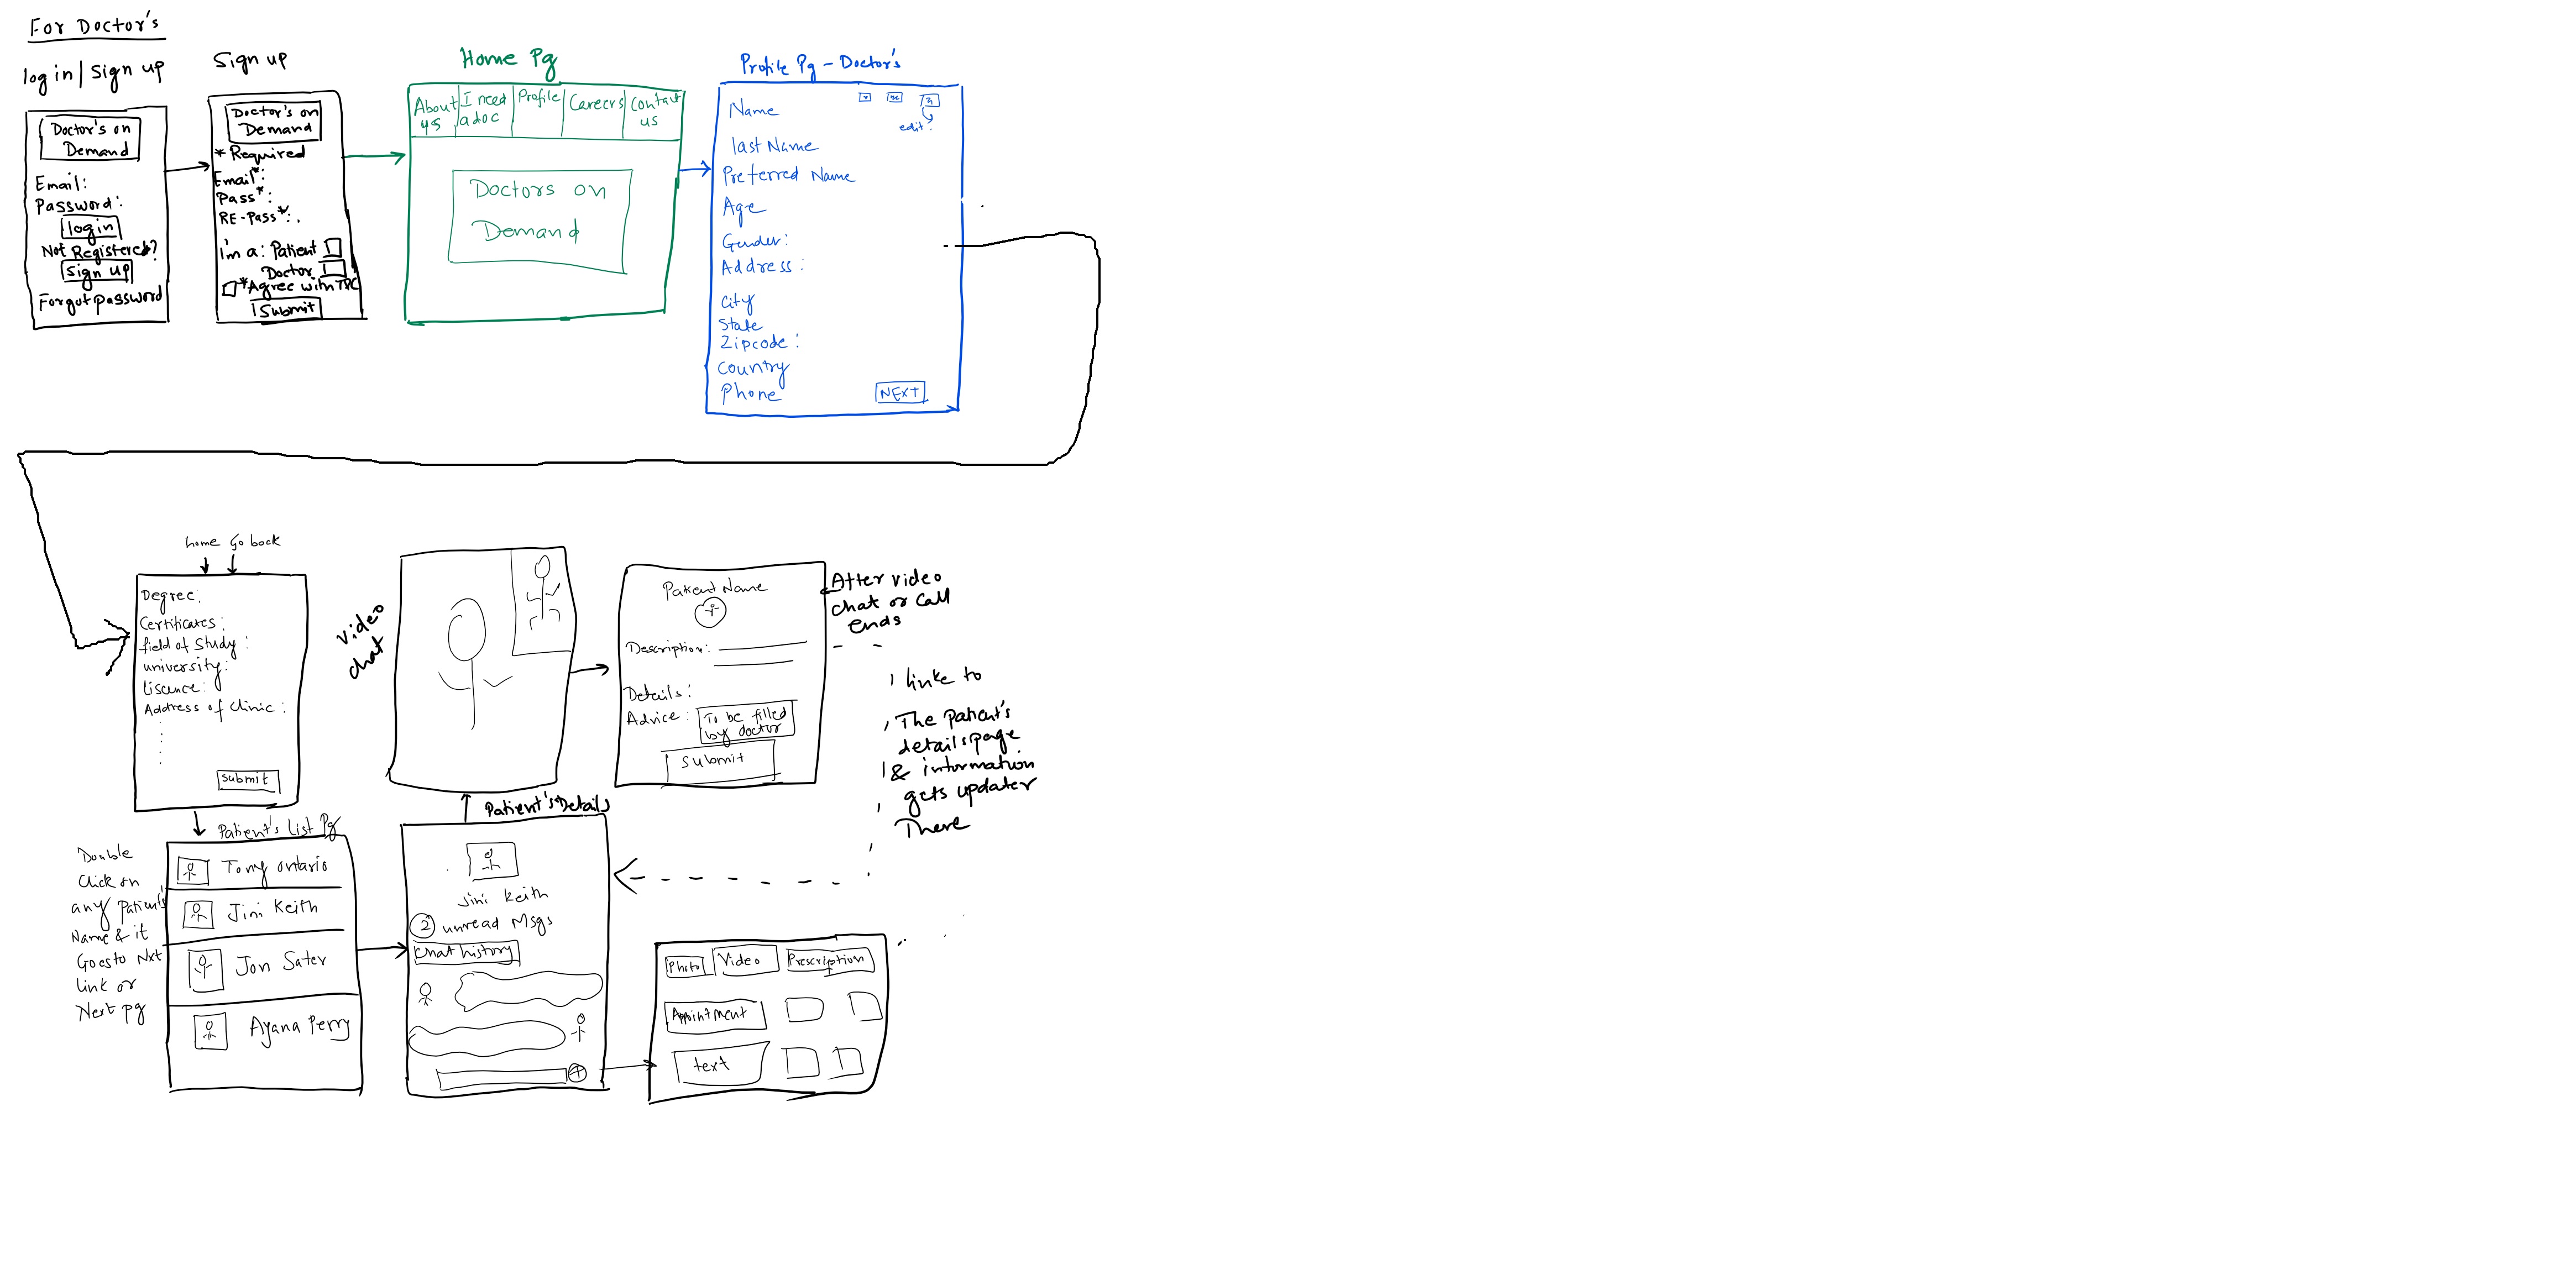 For Doctor's
log in | Sign up
Doctor's on
Demand
Email:
Password:
login
Not Registered?
Sign up
Forgot password
Sign up
Doctor's on
Demand
* Required
Email*:
Pass*:
RE-Pass*:
I'm a: Patient
Doctor
*Agree with T&C
Submit
Home Pg
About us
I need a doc
Profile
Careers
Contact us
Doctors on
Demand
Profile Pg - Doctor's
edit
Name
last Name
Preferred Name
Age
Gender:
Address:
City
State
Zipcode:
Country
Phone
NEXT
home Go back
Degree:
Certificates:
field of Study:
university:
Liscence:
Address of Clinic:
Submit
Video
chat
Patient Name
Description:
Details:
Advice:
To be filled
by doctor
Submit
After video
chat or call
ends
linke to
The patient's
details page
& information
gets updater
There
Patient's List Pg
Double
Click on
any patient's
Name & it
Goes to Nxt
link or
Next pg
Tony ontario
Jini Keith
Jon Sater
Ayana Perry
Patient's Details
Jini Keith
2 unread Msgs
Chat history
Photo
Video
Prescription
Appointment
text